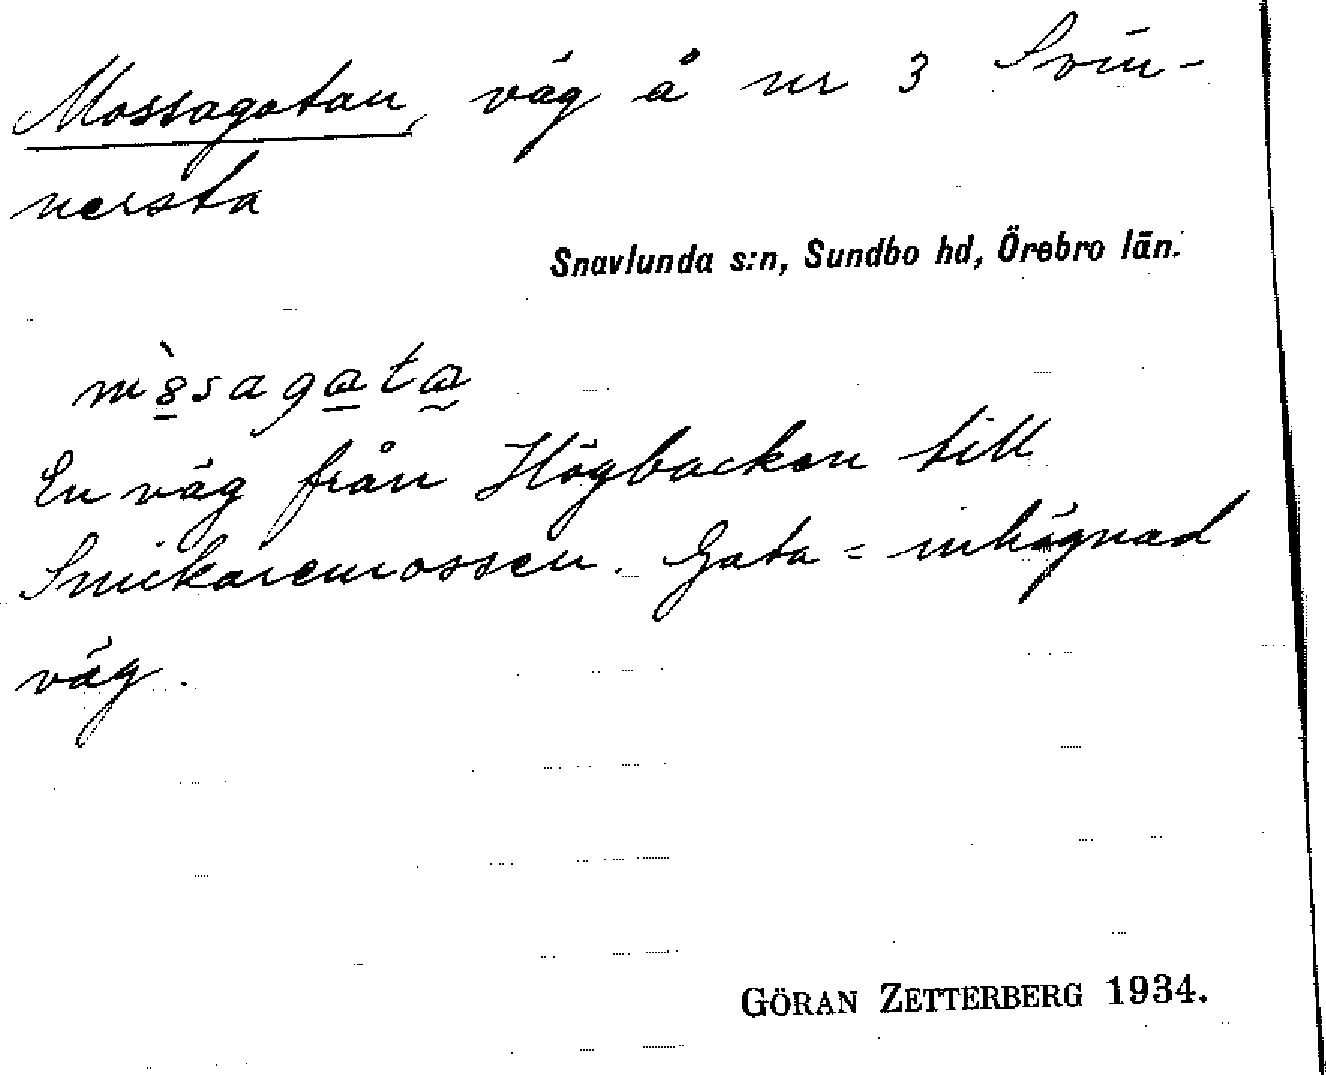 Mossagatan, väg å nr 3 Svin-
nersta
Snavlunda s:n, Sundbo hd, Örebro län.
mòsagata
En väg från Högbacken till
Snickaremossen. Gata = inhägnad
väg.
GÖRAN ZETTERBERG 1934.